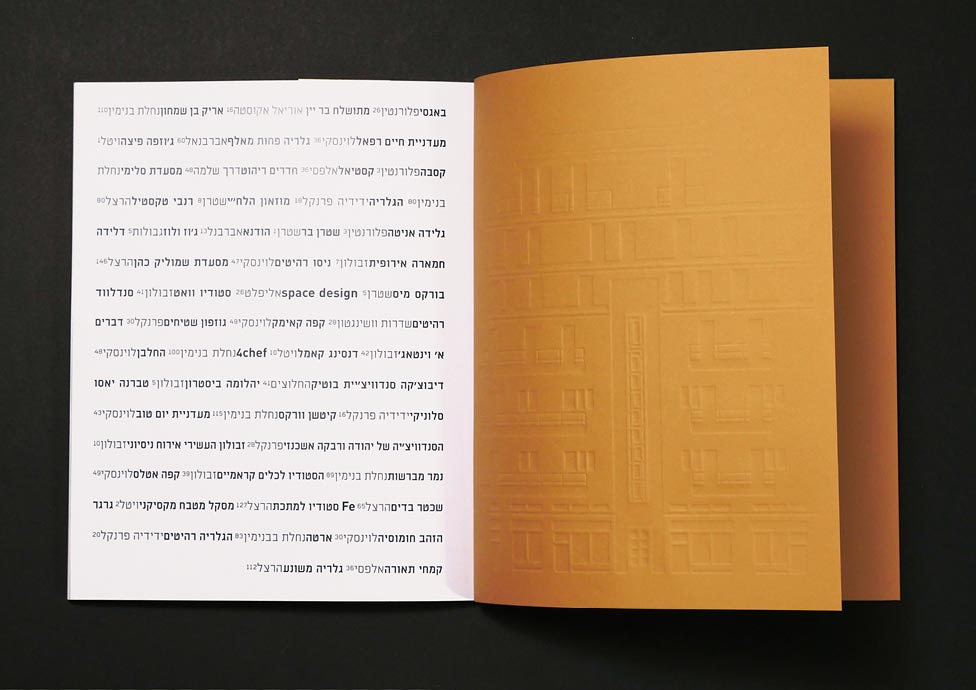 באגסיפלורנטין26 מתושלח בר יין אוריאל אקוסטה16 אריק בן שמחוןנחלת בנימין110
מעדניית חיים רפאללוינסקי36 גלריה פחות מאלףאברבנאל60 ג׳וזפה פיצהויטל1
קסבהפלורנטין3 קסטיאלאלפסי36 חדרים ריהוטדרך שלמה48 מסעדת סלימינחלת
בנימין80 הגלריהידידיה פרנקל18 מוזאון הלח״ישטרן8 רנבי טקסטילהרצל80
גלידה אניטהפלורנטין3 שטרן ברשטרן1 הודנאאברבנאל13 ג׳וז ולוזגבולות5 דלידה
חמארה אירופיתזבולון7 ניסו רהיטיםלוינסקי47 מסעדת שמוליק כהןהרצל146
בורקס מיסשטרן5 space designאליפלט26 סטודיו וואטזבולון41 סנדלווד
רהיטיםשדרות וושינגטון28 קפה קאימקלוינסקי49 גוזפון שטיחיםפרנקל30 דברים
א׳ וינטאג׳זבולון42 דנסינג קאמלויטל10 4chefנחלת בנימין100 החלבןלוינסקי48
דיבוצ׳קה סנדוויצ׳יית בוטיקהחלוצים41 יהלומה ביסטרוןזבולון5 טברנה יאסו
סלוניקיידידיה פרנקל16 קיטשן וורקסנחלת בנימין115 מעדניית יום טובלוינסקי43
הסנדוויצ׳יה של יהודה ורבקה אשכנזיפרנקל28 זבולון העשירי אירוח ניסיוניזבולון10
נמר מברשותנחלת בנימין89 הסטודיו לכלים קראמייםזבולון39 קפה אטלסלוינסקי49
שכטר בדיםהרצל65 Fe סטודיו למתכתהרצל127 מסקל מטבח מקסיקניויטל2 גרגר
הזהב חומוסיהלוינסקי30 ארטהנחלת בבנימין83 הגלריה רהיטיםידידיה פרנקל20
קמחי תאורהאלפסי36 גלריה משונעהרצל112